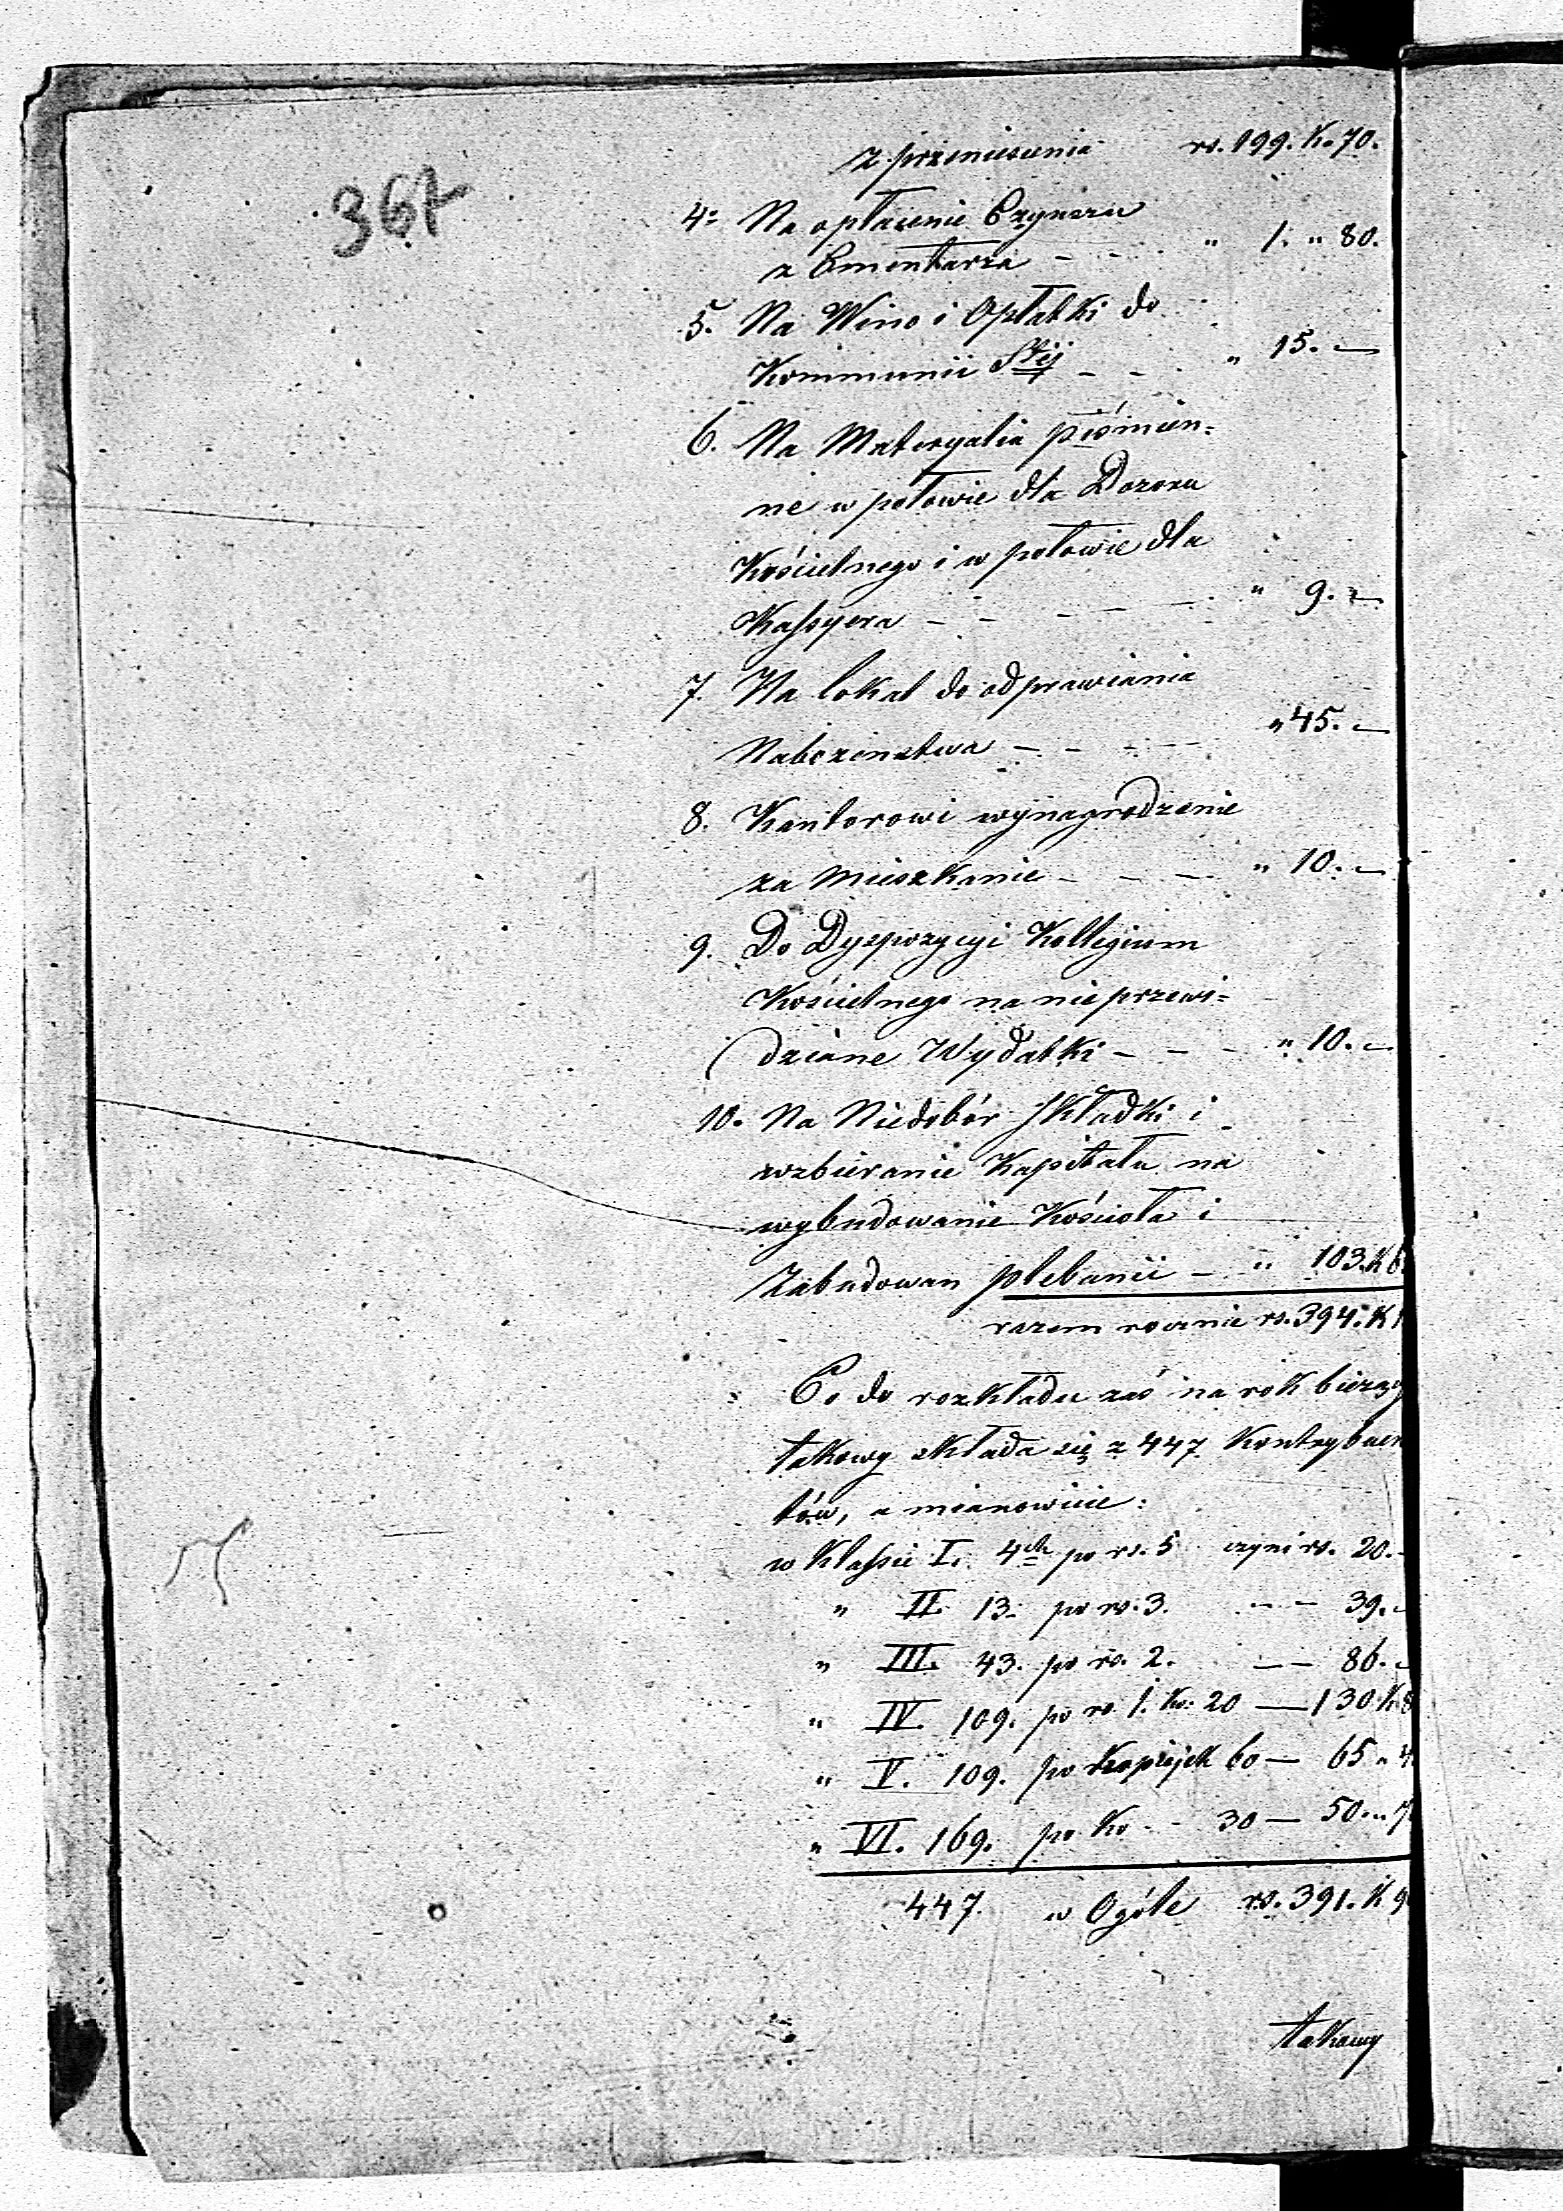 367
z przeniesienia rs. 199. K. 70.
4. Na opłacenie Czynszu
z Cmentarza - - - " 1. " 80.
5. Na Wino i Opłatki do
Kommunii Stéj - - - " 15. —
6. Na Materyalia piśmien=
ne w połowie dla Dozoru
Kościelnego i w połowie dla
Kassyera - - - - - " 9. —
7. Na lokal do odprawiania
Nabożenstwa - - - - " 45. —
8. Kantorowi wynagrodzenie
za mieszkanie - - - " 10. —
9. Do Dyspozycyi Kollegium
Kościelnego na nie przewi=
dziane Wydatki - - - " 10. —
10. Na Niedobór Składki i
wzbieranie Kapitału na
wybudowanie Kościoła i
Zabudowan plebanii - " 103. K 6
razem rocznie rs. 394. K 1
Co do rozkładu zaś na rok bieżący
takowy składa się z 447 Kontrybuen
tów, a mianowicie:
w Klassie I. 4ch po rs. 5 czyni rs. 20. -
" II. 13. po rs. 3. - - 39. -
" III. 43. po rs. 2. — 86. -
" IV. 109. po rs. 1. Ko: 20 — 130 K 8
" V. 109. po Kopiejek 60 — 65 " 4
" VI. 169. po Ko - - 30 — 50. " 7
447. w Ogóle rs. 391. K 9
takowy